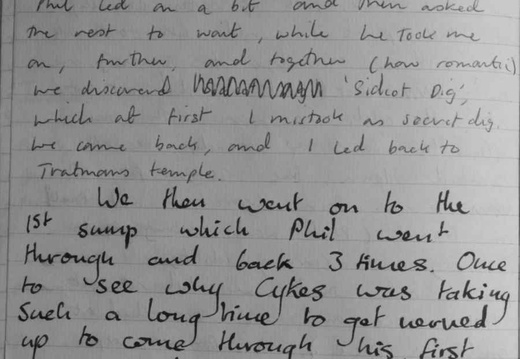 Phil led on a bit and then asked
the rest to wait, while he took me
on, further, and together (how romantic)
we discovered 'Sidcot Dig',
which at first I mistook as secret dig.
We came back, and I led back to
Tratmans temple.
We then went on to the
1st sump which Phil went
through and back 3 times. Once
to see why Cykes was taking
such a long time to get nerved
up to come through his first